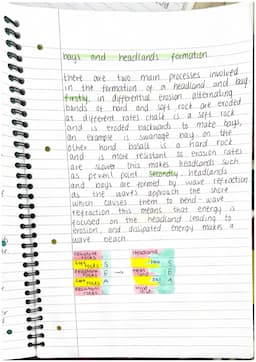 bays and headlands formation
there are two main processes involved
in the formation of a headland and bay
firstly, in differential erosion alternating
bands of hard and soft rock are eroded
at different rates chalk is a soft rock
and is eroded backwards to make bays,
an example is swanage bay on the
other hand basalt is a hard rock
and is more resistant so erosion rates
are slower this makes headlands such
as peveril point. Secondly, headlands
and bays are formed by wave refraction
as the waves approach the shore
which causes them to bend - wave
refraction. this means that energy is
focused on the headland leading to
erosion, and dissipated energy makes a
wave beach.
resistant
rocks
soft rocks S
resistant E
rocks
soft rocks A
resistant
rocks
headland
bay S
head land E
bay A
head land